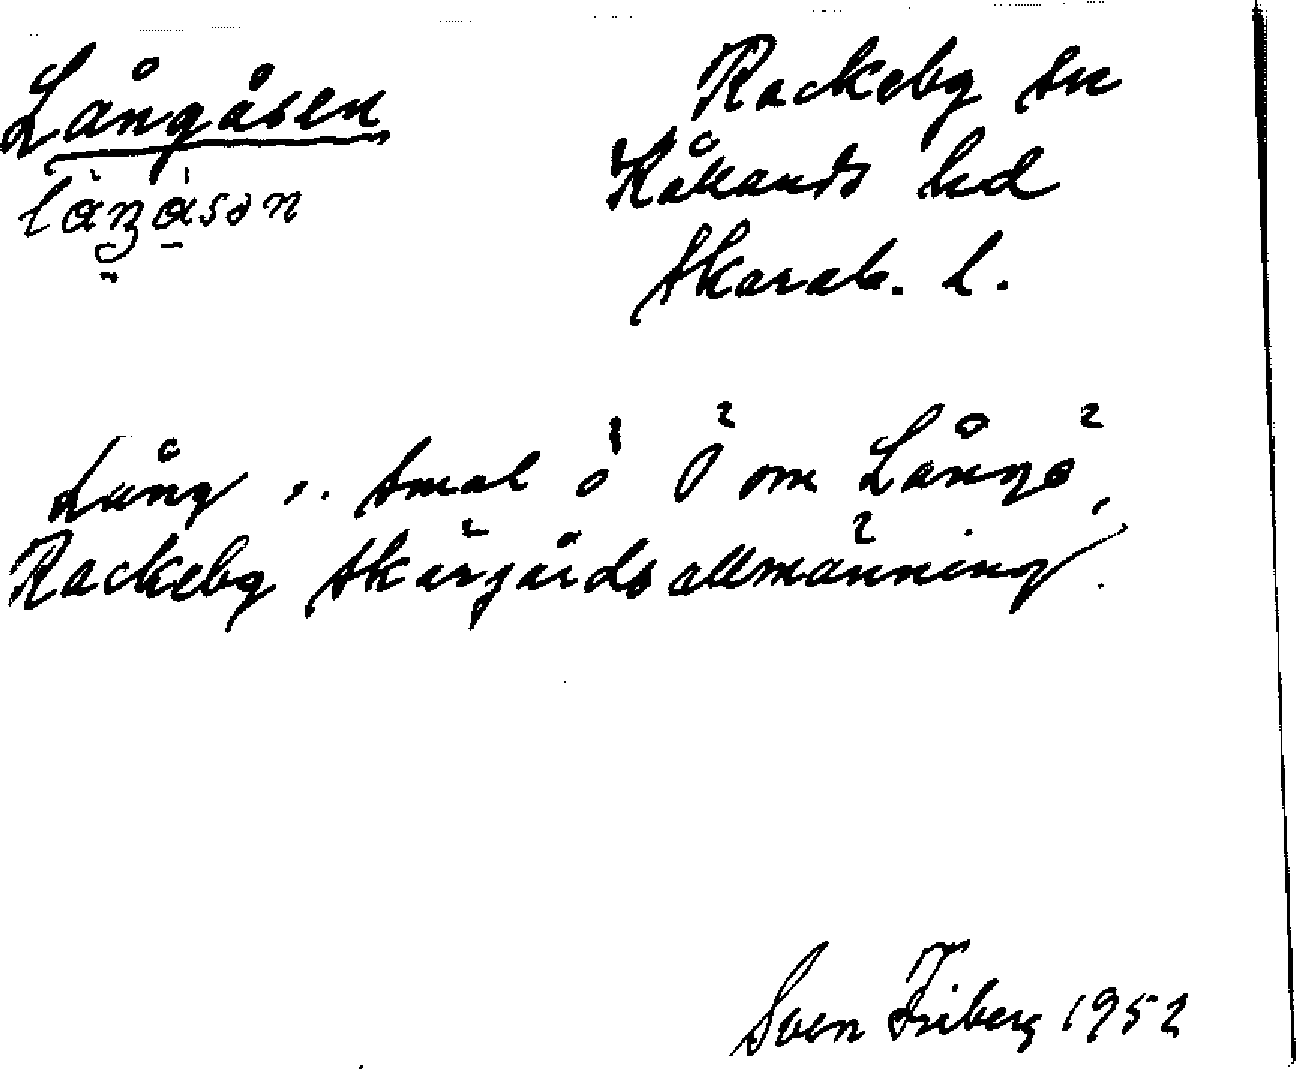 Långåsen
Rackeby sn
Kåkands hd
Skarab. l.
Lång o. smal ö Ö om Långö,
Rackeby skärgårdsallmänning.
Sven Friberg 1952